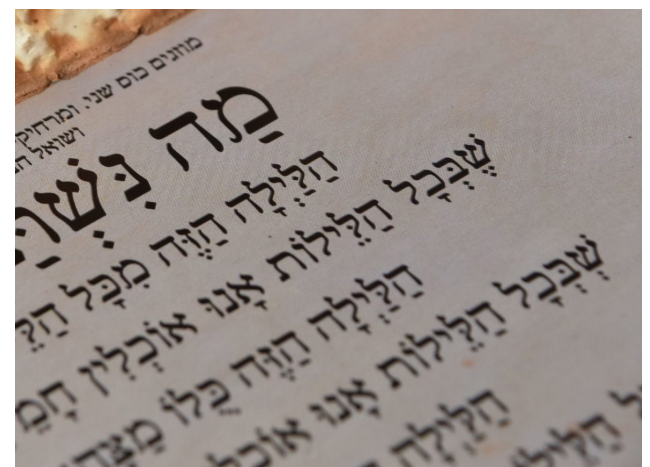 מוזגים כוס שני. ומרחיק
ושואל
מַה נִּשְׁתַּ
הַלַּיְלָה הַזֶּה מִכָּל הַלֵּ
שֶׁבְּכָל הַלֵּילוֹת אָנוּ אוֹכְלִין חָמֵ
הַלַּיְלָה הַזֶּה כֻּלּוֹ מַצָּה
שֶׁבְּכָל הַלֵּילוֹת אָנוּ אוֹכְל
הַלַּיְלָה